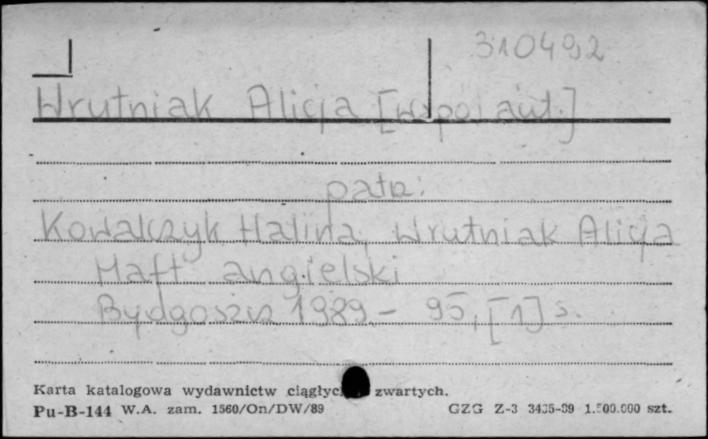 310492
Wrutniak Alicja [współaut.]
patrz:
Kowalczyk Halina, Wrutniak Alicja
Haft angielski
Bydgoszcz 1989.- 95, [1] s.
Karta katalogowa wydawnictw ciągłyc zwartych.
Pu-B-144 W.A. zam. 1560/On/DW/89 GZG Z-3 3435-89 1.500.000 szt.